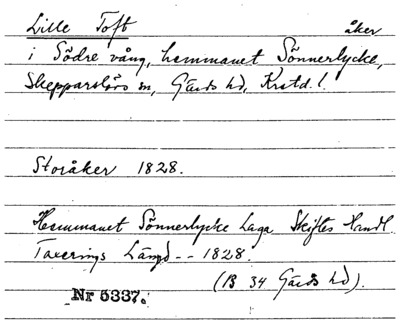 Lille Toft åker
i Södre vång, hemmanet Sönnerlycke,
Skepparslövs sn, Gärds hd, Krstd. l.
Storåker 1828.
Hemmanet Sönnerlycke Laga Skiftes Handl.
Taxerings Längd -- 1828.
(B 34 Gärds hd).
Nr 5337.